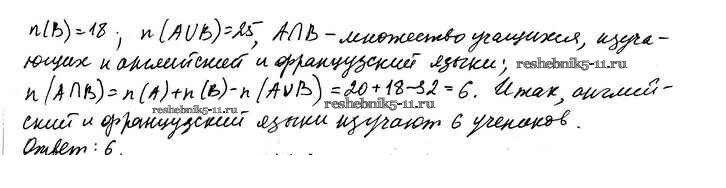 n(B)=18; n(A∪B)=25, A∩B – множество учащихся, изуча-
ющих и английский и французский языки;
reshebnik5-11.ru
n(A∩B)=n(A)+n(B)-n(A∪B)=20+18-32=6. Итак, англий-
reshebnik5-11.ru
ский и французский языки изучают 6 учеников.
Ответ: 6.